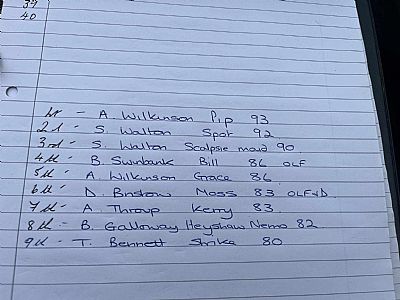 39
40
1st - A. Wilkinson Pip 93
2d - S. Walton Spot 92
3rd - S. Walton Scalpsie maid 90
4th - B. Swinbank Bill 86 OLF
5th - A. Wilkinson Grace 86
6th - D. Bristow Moss 83 OLF+D
7th - A. Throup Kerry 83
8th - B. Galloway Heyshaw Nemo 82
9th - T. Bennett Shrike 80